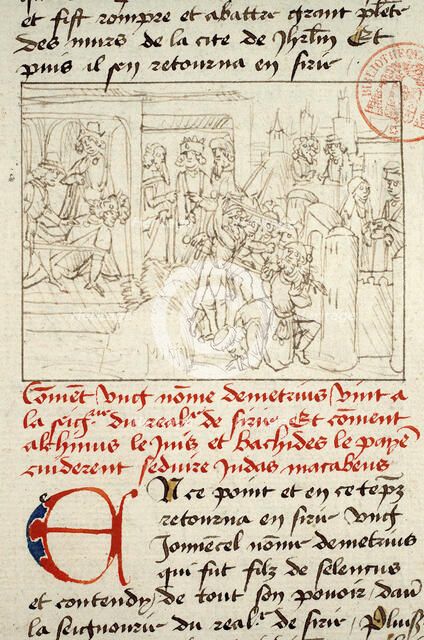 et fist rompre et abattre grant plete
des murs de la cite de Jhrlm Et
puis il sen retourna en sirie
BIBLIOTHEQU
Coment ung nome demetrius vint a
la seigur du realr de sirie Et coment
alchimus le Juif et Bachides le paye
cuiderent seduire Judas macabeus
En ce point et en ce tepz
retourna en sirie ung
Jouvencel nome demetrius
qui fut filz de seleucus
et contendy de tout son povoir davr
la seignourie du realr de sirie Plus